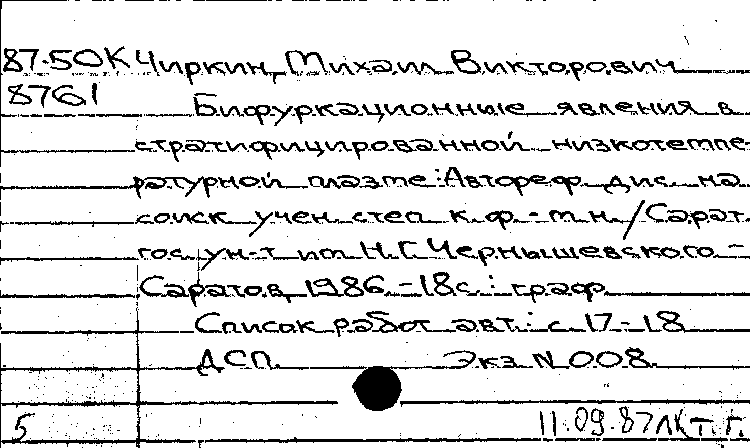 87-50К Чиркин, Михаил Викторович
8761 Бифуркационные явления в
стратифицированной низкотемпе-
ратурной плазме: Автореф. дис. на
соиск. учен. степ. к. ф.-м. н. / Сарат.
гос. ун-т им. Н.Г. Чернышевского. -
Саратов, 1986. - 18 с.: граф.
Список работ авт.: с. 17-18
ДСП. Экз. N 008.
5 11.09.87